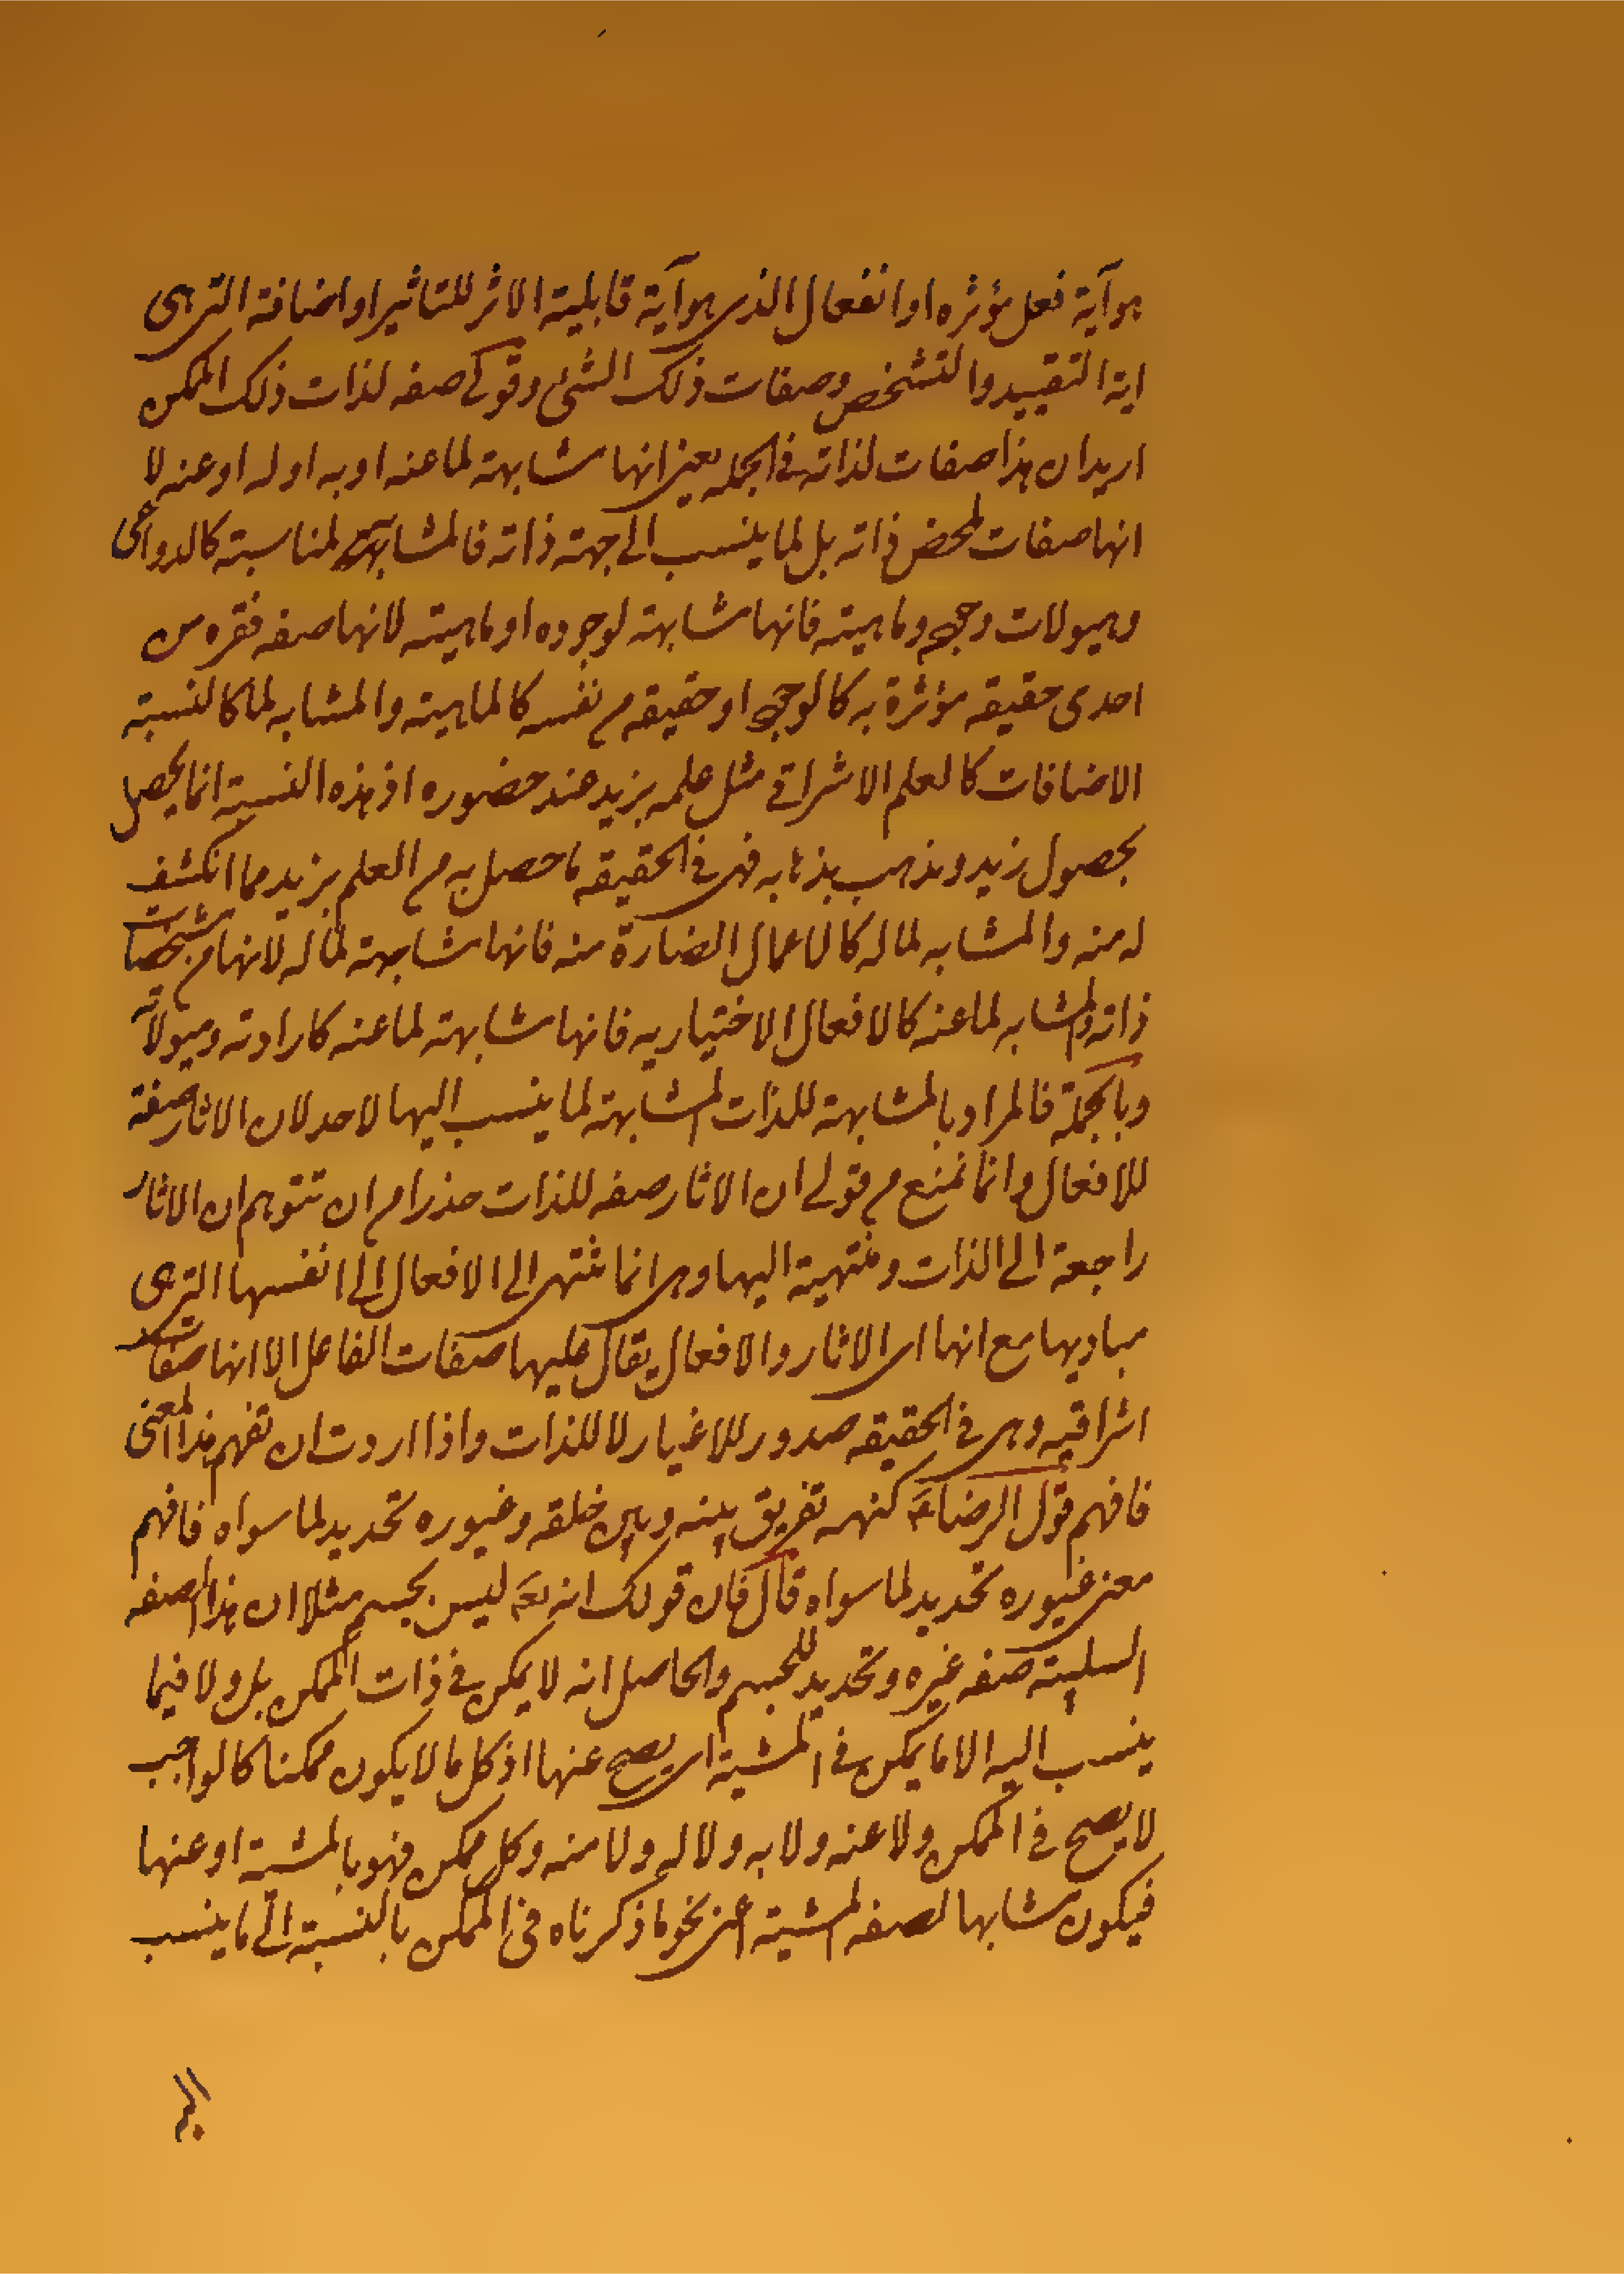 هو آية فعل مؤثره او انفعال الذي هو آية قابلية الاثر للتاثير او اضافة التي هي
اية التقييد والتشخص وصفات ذلك الشئ وقولي صفه لذات ذلك الممكن
اريد ان هذا صفات لذاته في الجمله يعني انها مشابهة لما عنه او به او له او عنه لا
انها صفات لمحض ذاته بل لما ينسب الى جهة ذاته فالمشابهة لمناسبته كالدواعى
وميولات وجوده وماهيته فانها مشابهة لوجوده او ماهيته لانها صفه فقره من
احدى حقيقه مؤثرة به كالوجود او حقيقه م نفسه كالماهيته والمشابه لما كالنسبته
الاضافات كالعلم الاشراقي مثل علمه بزيد عند حضوره اذ هذه النسبة انما يحصل
بحصول زيد ويذهب بذهابه فهي في الحقيقه ما حصل به م العلم بزيد مما انكشف
له منه والمشابه لما له كالاعمال الضارة منه فانها مشابهة لما له لانها م مشخصات
ذاته والمشابه لما عنه كالافعال الاختياريه فانها مشابهة لما عنه كارادته وميولاته
وبالجملة فالمراد بالمشابهة للذات المشابهة لما ينسب اليها لاحد لان الاثار صفة
للافعال وانما نمنع م قولي ان الاثار صفه للذات حذرا م ان تتوهم ان الاثار
راجعة الى الذات ومنتهية اليها وهي انما تنتهي الى الافعال الى انفسها التي هي
مباديها مع انها اي الاثار والافعال يقال عليها صفات الفاعل الا انها صفات
اشراقيه وهي في الحقيقه صدور للاغيار لا للذات واذا اردت ان تفهم هذا المعنى
فافهم قول الرضا ع كنهه تفريق بينه وبين خلقه وغيوره تحديد لما سواه فافهم
معنى غيوره تحديد لما سواه قال فان قولك انه تع ليس بجسم مثلا ان هذا الصفه
السلبيته صفه غيره وتحديد للجسم والحاصل انه لا يمكن في ذات الممكن بل ولا فيما
ينسب اليه الا ما يمكن في المشية اي يصح عنها اذ كل ما لا يكون ممكنا كالواجب
لا يصح في الممكن ولا عنه ولا به ولا له ولا منه وكل ممكن فهو بالمشية او عنها
فيكون مشابها لصفه المشية اعني نحو ما ذكرناه في الممكن بالنسبة الى ما ينسب
اليه